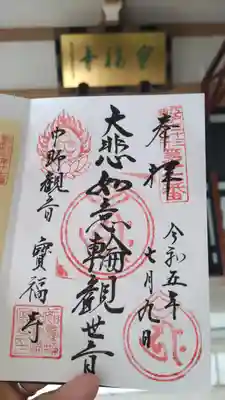 寶福寺
奉拝
令和五年
七月九日
大悲如意輪観世音
中野観音
寶福寺